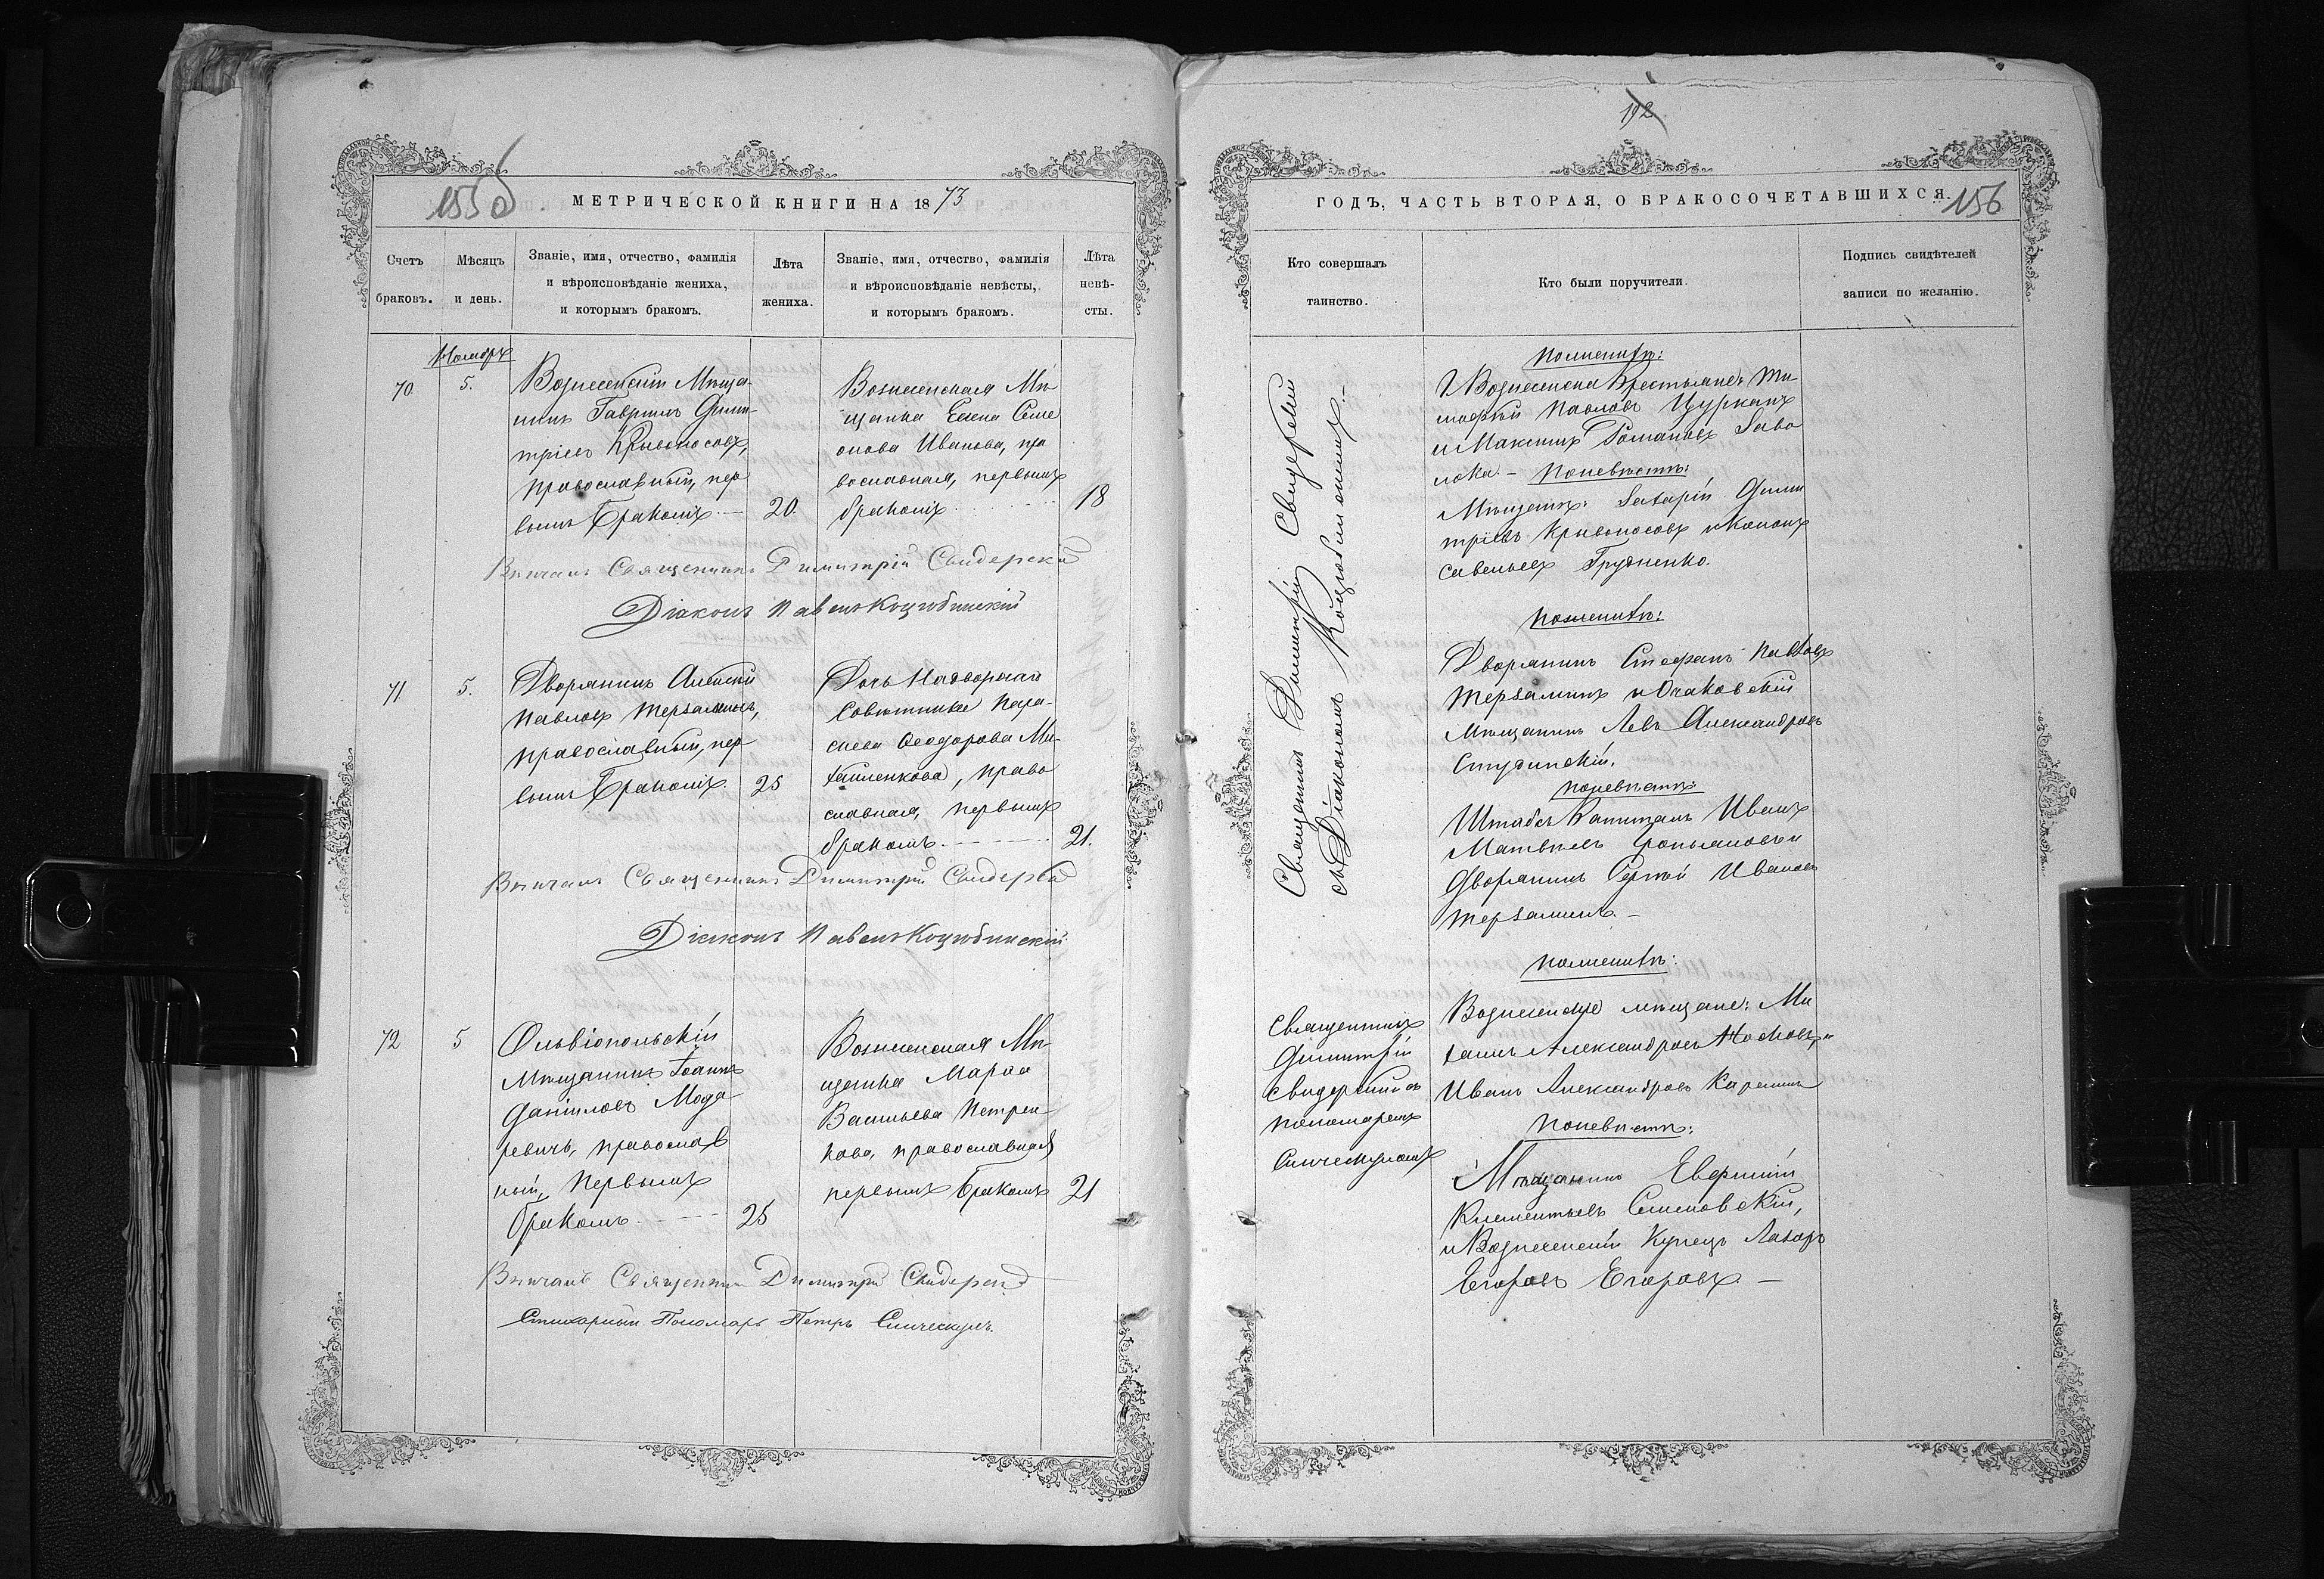 155об
МЕТРИЧЕСКОЙ КНИГИ НА 1873
Счетъ браковъ.
Мѣсяцъ и день.
Званіе, имя, отчество, фамилія
и вѣроисповѣданіе жениха,
и которымъ бракомъ.
Лѣта
жениха.
Званіе, имя, отчество, фамилія
и вѣроисповѣданіе невѣсты,
и которымъ бракомъ.
Лѣта
невѣ-
сты.
Ноябрь
70
5.
Вознесенскій Мѣща-
нинъ Гавріилъ Дими-
тріевъ Кривоносовъ,
православный, пер
вымъ бракомъ. —
20.
Вознесенская Мѣ
щанка Елена Симе
онова Иванова, пра
вославная, первымъ
бракомъ
18
Вѣнчалъ Священникъ Димитрій Свидерскій
Діаконъ Павелъ Коцюбинскій
71
5.
Дворянинъ Алексѣй
Павловъ Терзаминъ,
православный, пер
вымъ бракомъ.
25
Дочь Надворнаго
Совѣтника Пара-
скева Ѳеодорова Ми-
хайленкова, право
славная, первымъ
бракомъ.
21.
Вѣнчалъ Священникъ Димитрій Свидерскій
Діаконъ Павелъ Коцюбинскій
72
5
Ольвіопольскій
Мѣщанинъ Іоаннъ
Даніиловъ Мода
ревичъ, православ
ный, первымъ
бракомъ.
25
Вознесенская Мѣ-
щанка Марѳа
Васильева Петрен
кова, православная
первымъ бракомъ
21
Вѣнчалъ Священникъ Димитрій Свидерскій
Стихарный Пономарь Петръ Синческулъ.
192
ГОДЪ, ЧАСТЬ ВТОРАЯ, О БРАКОСОЧЕТАВШИХСЯ.
156
Кто совершалъ
таинство.
Кто были поручители.
Подпись свидѣтелей
записи по желанію.
Священникъ Димитрій Свидерскій
съ Діакономъ Коцюбинскимъ. —
По женихѣ:
г. Вознесенска Крестьяне: Ти
мофѣй Павловъ Цурканъ
и Максимъ Романовъ Заво
лока. — По невѣстѣ:
Мѣщане: Захарій Дими
тріевъ Кривоносовъ и Кононъ
Савельевъ Грудненко.
По женихѣ:
Дворянинъ Стефанъ Павловъ
Терзаминъ и Очаковскій
мѣщанинъ Левъ Александровъ
Студинскій.
По невѣстѣ
Штабсъ Капитанъ Иванъ
Матвѣевъ
Дворянинъ Сергѣй Ивановъ
Терзаминъ. —
По женихѣ:
Священникъ
Димитрій
Свидерскій съ
пономаремъ
Синческуломъ
Вознесенскіе мѣщане: Ми
хаилъ Александровъ Носковъ, и
Иванъ Александровъ Карпинъ
По невѣстѣ:
Мѣщанинъ Евфимій
Климентьевъ Симовскій,
и Вознесенскій Купецъ Лазарь
Егоровъ Егоровъ. —